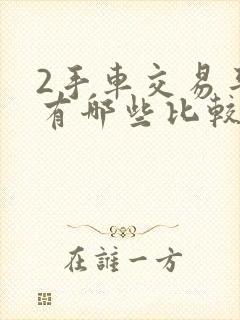 2手車交易
有哪些比較
在誰一方